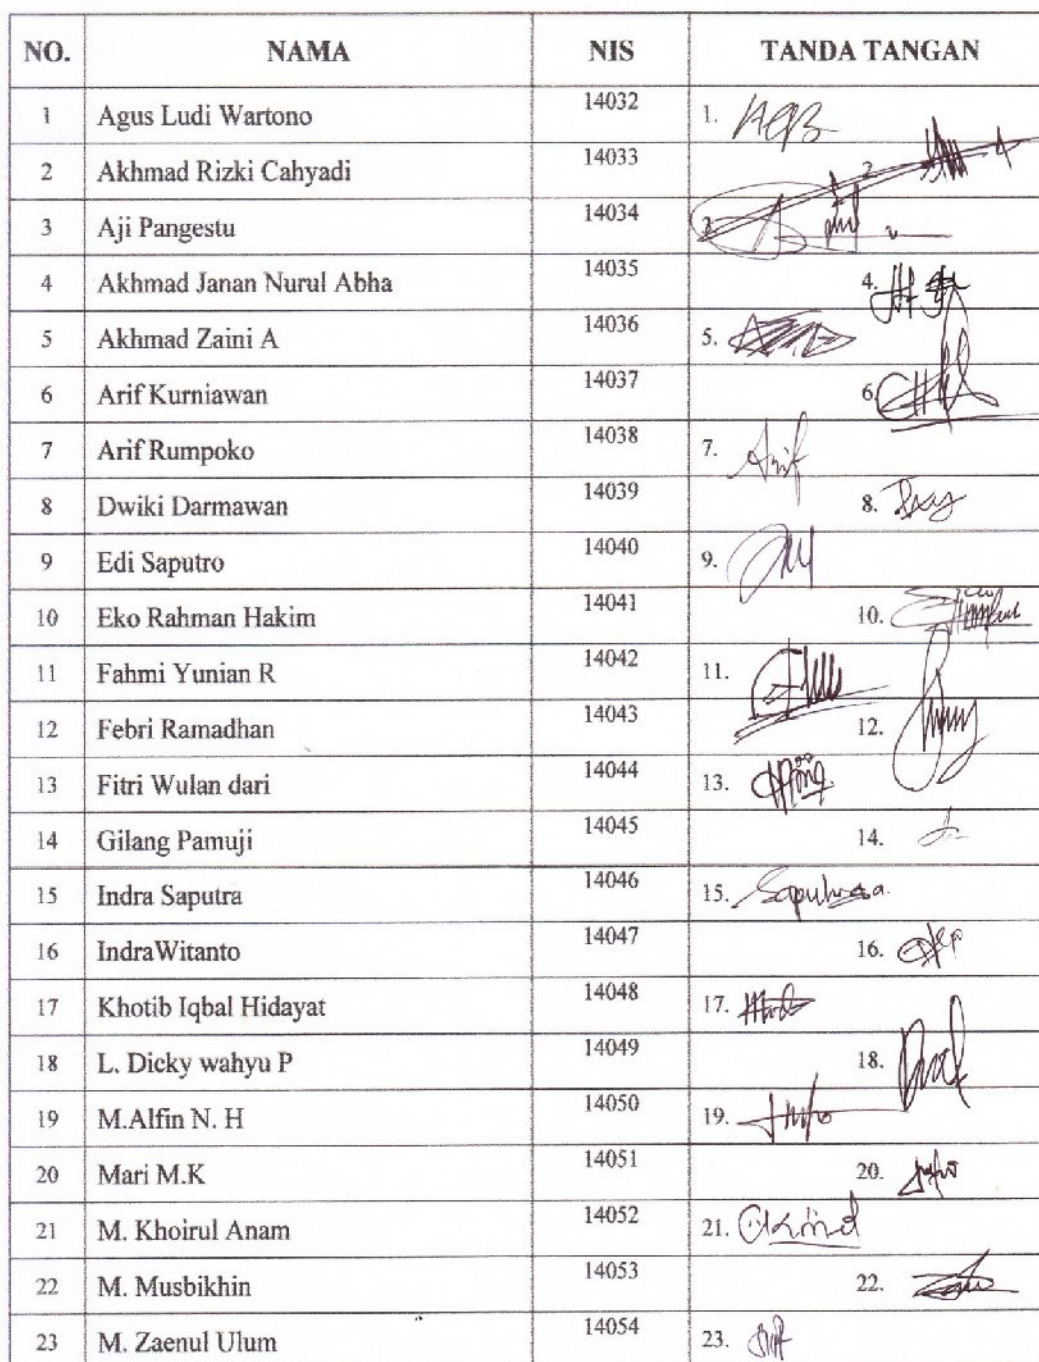 NO. NAMA NIS TANDA TANGAN
1 Agus Ludi Wartono 14032 1.
2 Akhmad Rizki Cahyadi 14033 2
3 Aji Pangestu 14034 3
4 Akhmad Janan Nurul Abha 14035 4.
5 Akhmad Zaini A 14036 5.
6 Arif Kurniawan 14037 6
7 Arif Rumpoko 14038 7. Arif
8 Dwiki Darmawan 14039 8.
9 Edi Saputro 14040 9.
10 Eko Rahman Hakim 14041 10.
11 Fahmi Yunian R 14042 11.
12 Febri Ramadhan 14043 12.
13 Fitri Wulan dari 14044 13.
14 Gilang Pamuji 14045 14.
15 Indra Saputra 14046 15.
16 IndraWitanto 14047 16.
17 Khotib Iqbal Hidayat 14048 17.
18 L. Dicky wahyu P 14049 18.
19 M.Alfin N. H 14050 19.
20 Mari M.K 14051 20.
21 M. Khoirul Anam 14052 21.
22 M. Musbikhin 14053 22.
23 M. Zaenul Ulum 14054 23.